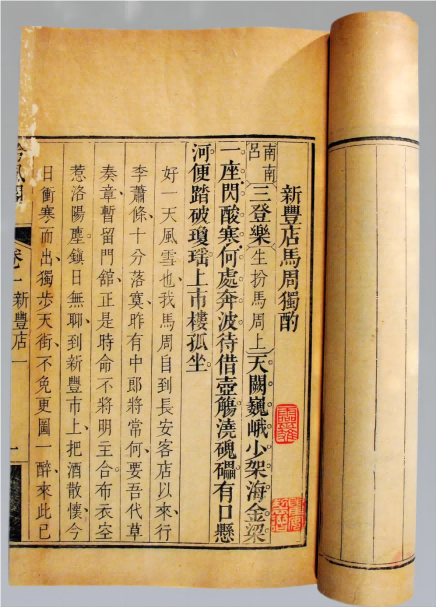 新豐店馬周獨酌
南南呂三登樂生扮馬周上天闕巍峨少架海金梁
一座閃酸寒何處奔波待借壺觴澆磈礧有口懸
河便踏破瓊瑤上市樓孤坐
好一天風雪也我馬周自到長安客店以來行
李蕭條十分落寞昨有中郎將常何要吾代草
奏章暫留門舘正是時命不將明主合布衣空
惹洛陽塵鎮日無聊到新豐市上把酒散懷今
日衝寒而出獨步天街不免更圖一醉來此已
卷一 新豐店 一